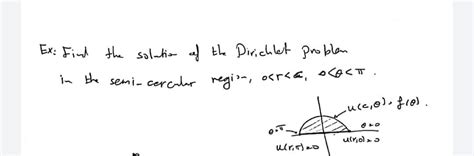 Ex: Find the solution of the Dirichlet problem
in the semi-cercular region, 0<r<c, 0<θ<π.
u(c,θ)=f(θ).
θ=π θ=0
u(r,π)=0 u(r,0)=0